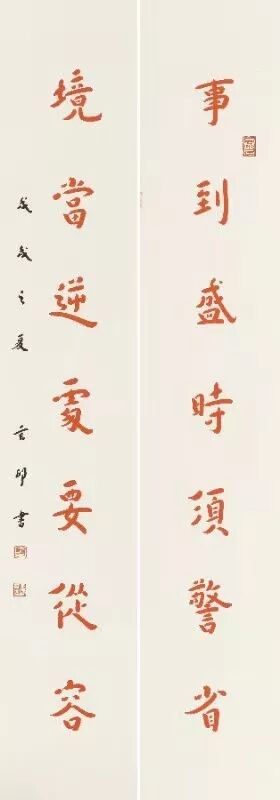 事到盛時須警省
境當逆處要從容
戊戌之夏
書